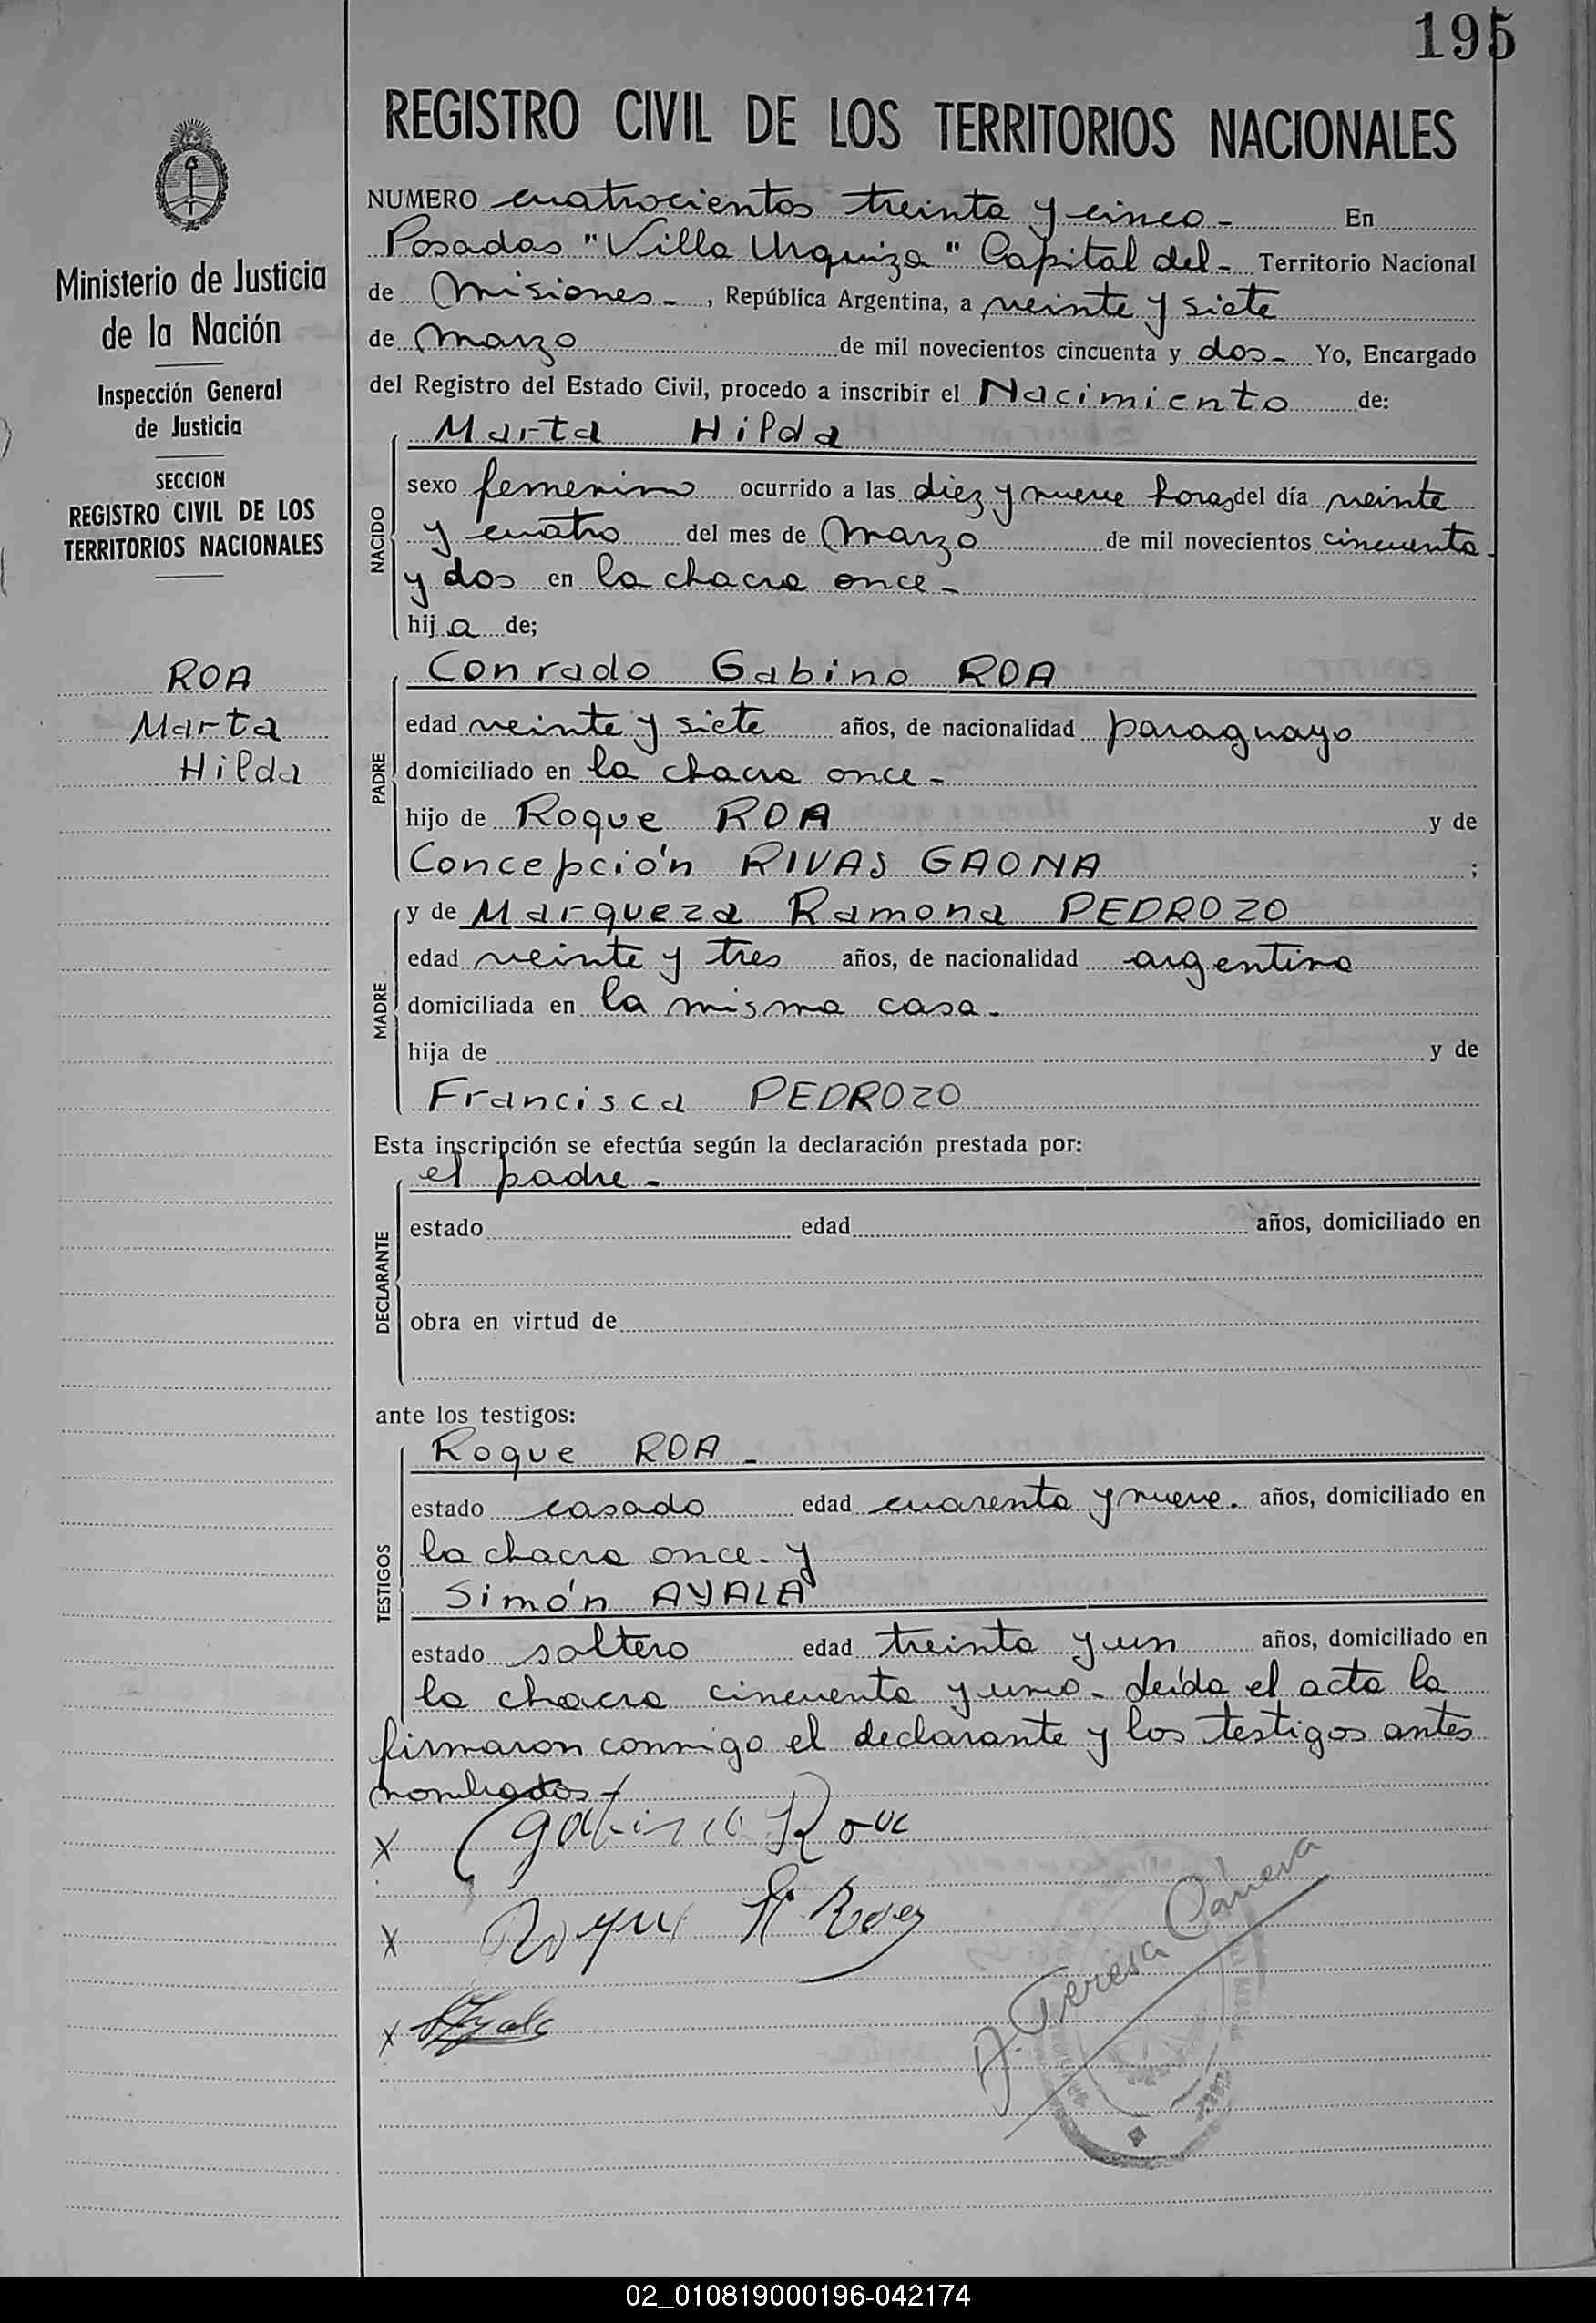 195
REGISTRO CIVIL DE LOS TERRITORIOS NACIONALES
Ministerio de Justicia
de la Nación
Inspección General
de Justicia
SECCION
REGISTRO CIVIL DE LOS
TERRITORIOS NACIONALES
ROA
Marta
Hilda
NUMERO cuatrocientos treinta y cinco - En
Posadas "Villa Urquiza" Capital del - Territorio Nacional
de Misiones - , República Argentina, a veinte y siete
de Marzo de mil novecientos cincuenta y dos - Yo, Encargado
del Registro del Estado Civil, procedo a inscribir el Nacimiento de:
NACIDO
Marta Hilda
sexo femenino ocurrido a las diez y nueve horas del día veinte
y cuatro del mes de Marzo de mil novecientos cincuenta
y dos en la chacra once -
hija de;
PADRE
Conrado Gabino ROA
edad veinte y siete años, de nacionalidad paraguayo
domiciliado en la chacra once -
hijo de Roque ROA y de
Concepción RIVAS GAONA ;
MADRE
y de Marqueza Ramona PEDROZO
edad veinte y tres años, de nacionalidad argentina
domiciliada en la misma casa -
hija de y de
Francisca PEDROZO
Esta inscripción se efectúa según la declaración prestada por:
DECLARANTE
el padre -
estado edad años, domiciliado en
obra en virtud de
ante los testigos:
TESTIGOS
Roque ROA -
estado casado edad cuarenta y nueve - años, domiciliado en
la chacra once - y
Simón AYALA
estado soltero edad treinta y un años, domiciliado en
la chacra cincuenta y uno - Leída el acta la
firmaron conmigo el declarante y los testigos antes
nombrados -
X Gabino Roa
X Roque
X SAyala
A. Teresa Cáneva
02_010819000196-042174